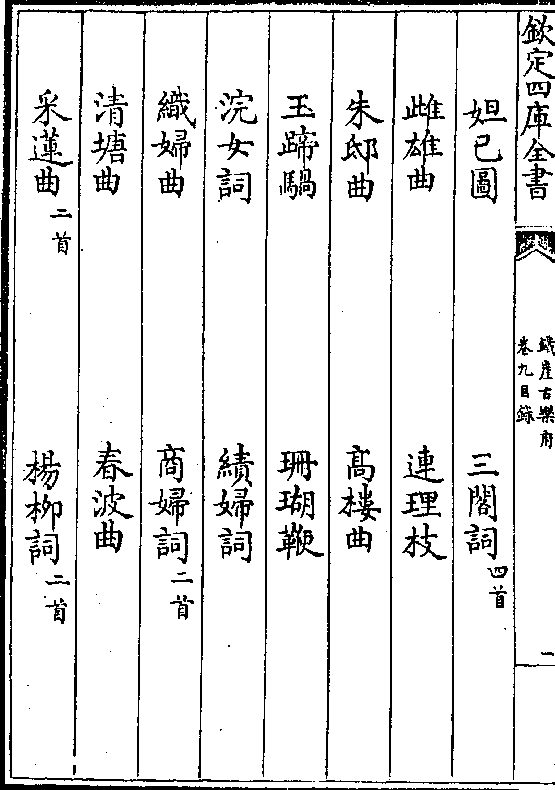 欽定四庫全書
鐵崖古樂府
卷九目錄
一
妲己圖 三閣詞四首
雌雄曲 連理枝
朱邸曲 高樓曲
玉蹄騧 珊瑚鞭
浣女詞 績婦詞
織婦曲 商婦詞二首
清塘曲 春波曲
采蓮曲二首 楊柳詞二首